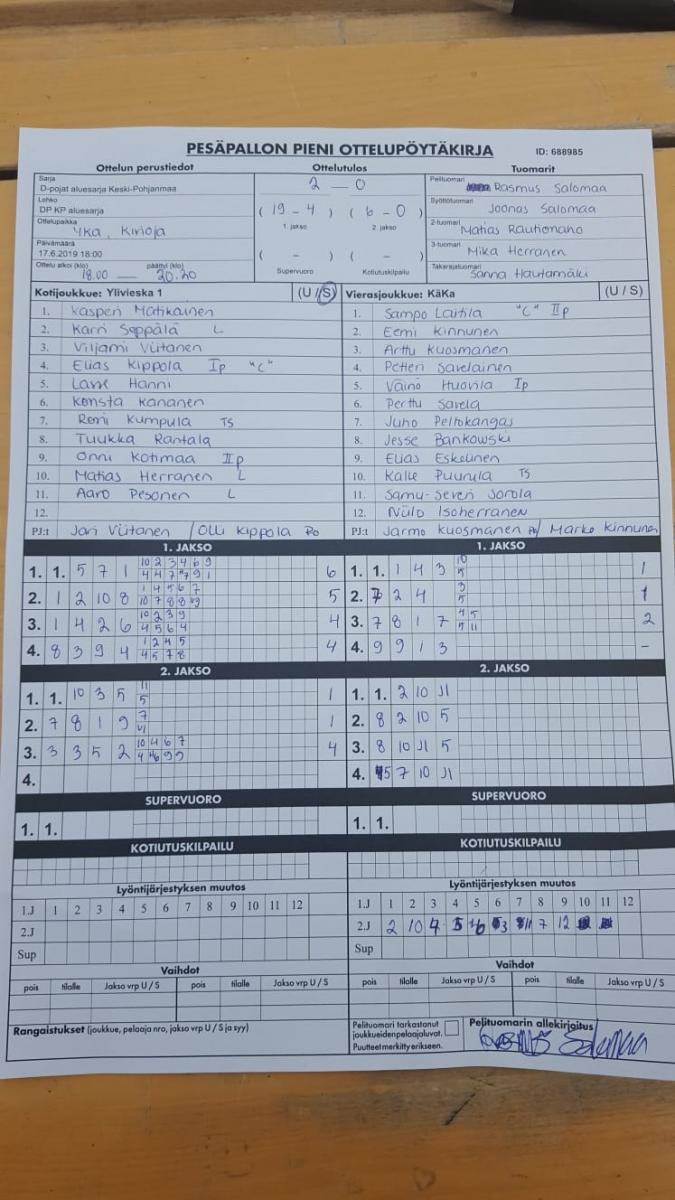 PESÄPALLON PIENI OTTELUPÖYTÄKIRJA ID: 688985
Ottelun perustiedot Ottelutulos Tuomarit
Sarja
D-pojat aluesarja Keski-Pohjanmaa
Lohko
DP KP aluesarja
Ottelupaikka
Yka, Kirjoja
Päivämäärä
17.6.2019 18:00
Ottelu alkoi (klo) päättyi (klo)
18.00 — 20.20
2 — 0
( 19 - 4 ) ( 6 - 0 )
1. jakso 2. jakso
( - ) ( - )
Supervuoro Kotiutuskilpailu
Pelituomari Rasmus Salomaa
Syöttötuomari Joonas Salomaa
2-tuomari Matias Rautionaho
3-tuomari Mika Herranen
Takarajatuomari Sanna Hautamäki
Kotijoukkue: Ylivieska 1 (U / S)
1. Kasperi Matikainen
2. Karri Seppälä L
3. Viljami Viitanen
4. Elias Kippola Ip "C"
5. Lasse Hanni
6. Konsta Kananen
7. Remi Kumpula TS
8. Tuukka Rantala
9. Onni Kotimaa IIp
10. Matias Herranen L
11. Aaro Pesonen L
12.
PJ:t Jari Viitanen / Olli Kippola Po
Vierasjoukkue: KäKa (U / S)
1. Sampo Laitila "C" IIp
2. Eemi Kinnunen
3. Arttu Kuosmanen
4. Petteri Savelainen
5. Väinö Huovila Ip
6. Perttu Savela
7. Juho Peltokangas
8. Jesse Bankowski
9. Elias Eskelinen
10. Kalle Puurula TS
11. Samu-Severi Jorola
12. Niilo Isoherranen
PJ:t Jarmo Kuosmanen / Marko Kinnunen
1. JAKSO
1. 1. 5 7 1 10 2 3 4 6 9 6
2. 1 2 10 8 1 4 5 6 7 5
3. 1 4 2 6 10 2 3 9 4
4 5 6 4
4. 8 3 9 4 1 2 4 5 4
4 5 7 8
1. JAKSO
1. 1. 1 4 3 10 1
5
2. 7 2 4 3 1
5
3. 7 8 1 7 4 5 2
5 11
4. 9 9 1 3 -
2. JAKSO
1. 1. 10 3 5 11 1
5
2. 7 8 1 9 7 1
3. 3 3 5 2 10 4 6 7 4
4.
2. JAKSO
1. 1. 2 10 11
2. 8 2 10 5
3. 8 10 11 5
4. 5 7 10 11
SUPERVUORO
1. 1.
SUPERVUORO
1. 1.
KOTIUTUSKILPAILU
KOTIUTUSKILPAILU
Lyöntijärjestyksen muutos
1.J 1 2 3 4 5 6 7 8 9 10 11 12
2.J
Sup
Lyöntijärjestyksen muutos
1.J 1 2 3 4 5 6 7 8 9 10 11 12
2.J 2 10 4 5 6 3 11 7 12
Sup
Vaihdot
pois tilalle Jakso vrp U / S pois tilalle Jakso vrp U / S
Vaihdot
pois tilalle Jakso vrp U / S pois tilalle Jakso vrp U / S
Rangaistukset (joukkue, pelaaja nro, jakso vrp U / S ja syy)
Pelituomari tarkastanut
joukkueidenpelaajaluvat.
Puutteet merkitty erikseen.
Pelituomarin allekirjoitus